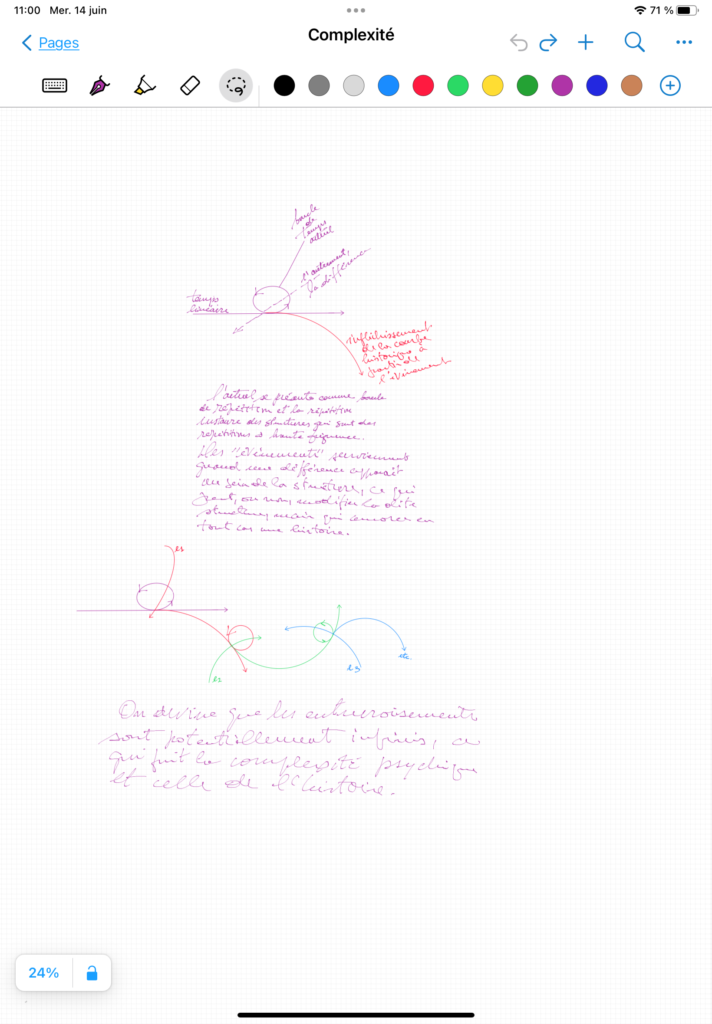 11:00 Mer. 14 juin
71 %
Pages
Complexité
boucle
de
temps
actuel
la différence
temps
linéaire
Infléchissement
de la courbe
historique à
partir de
l'événement
L'actuel se présente comme boucle
de répétition et la répétition
instaure des structures qui sont des
répétitions à haute fréquence.
Des "événements" surviennent
quand une différence apparaît
au sein de la structure, ce qui
peut, ou non, modifier la dite
structure, mais qui amorce en
tout cas une histoire.
es
es
es
etc
On devine que les entrecroisements
sont potentiellement infinis, ce
qui fait la complexité psychique
et celle de l'histoire.
24%